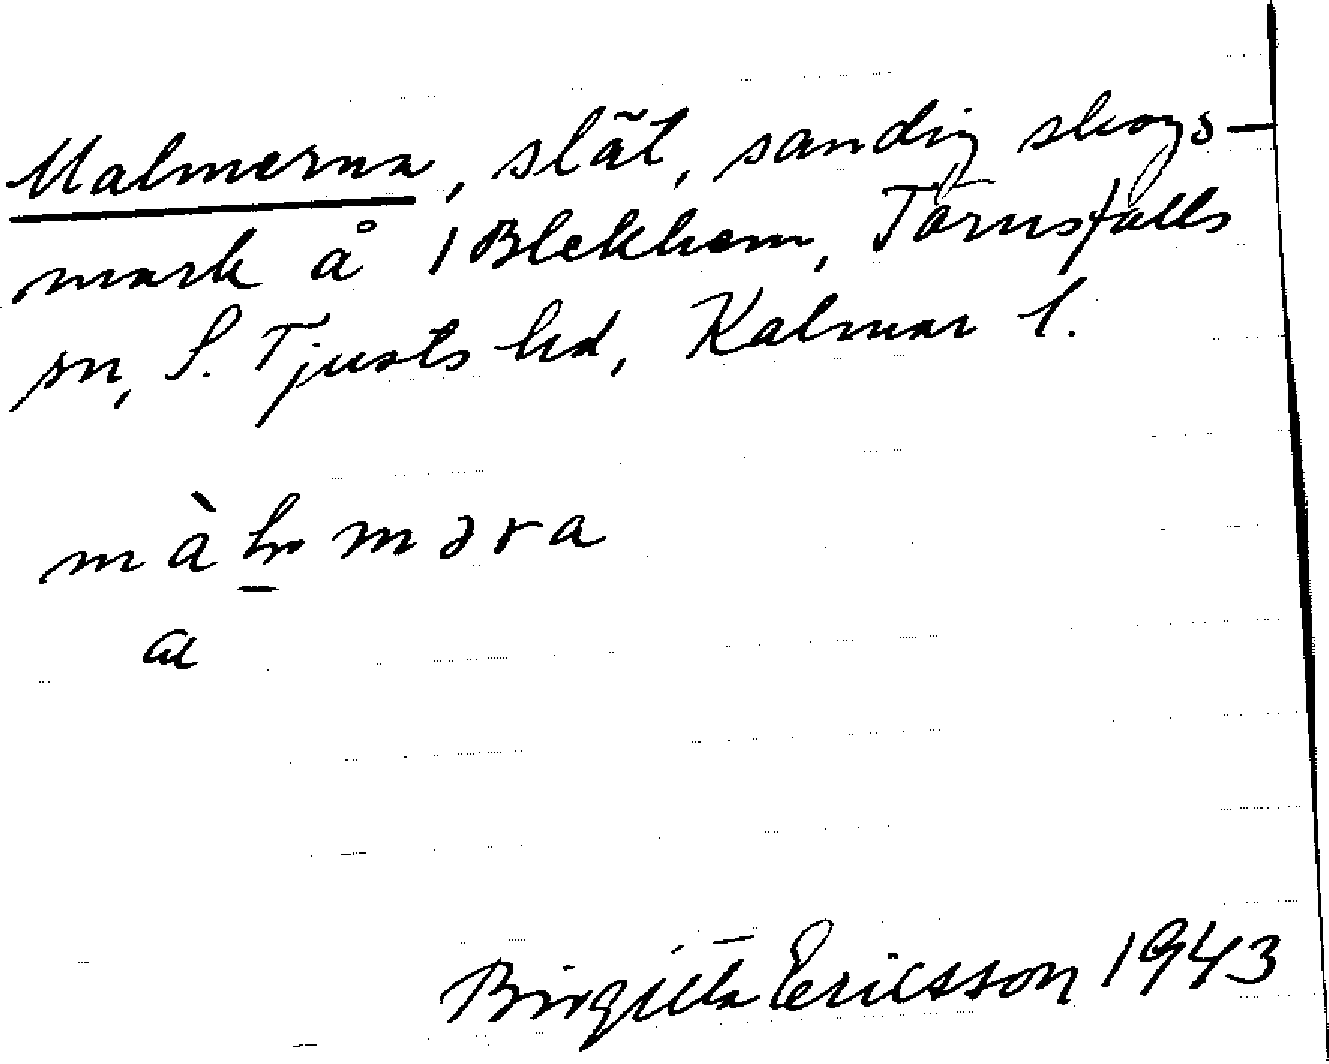 Malmerna, slät, sandig skogs-
mark å 1 Blekhem, Törnsfalls
sn, S. Tjusts hd, Kalmar l.
màlməra
a
Birgitta Ericsson 1943